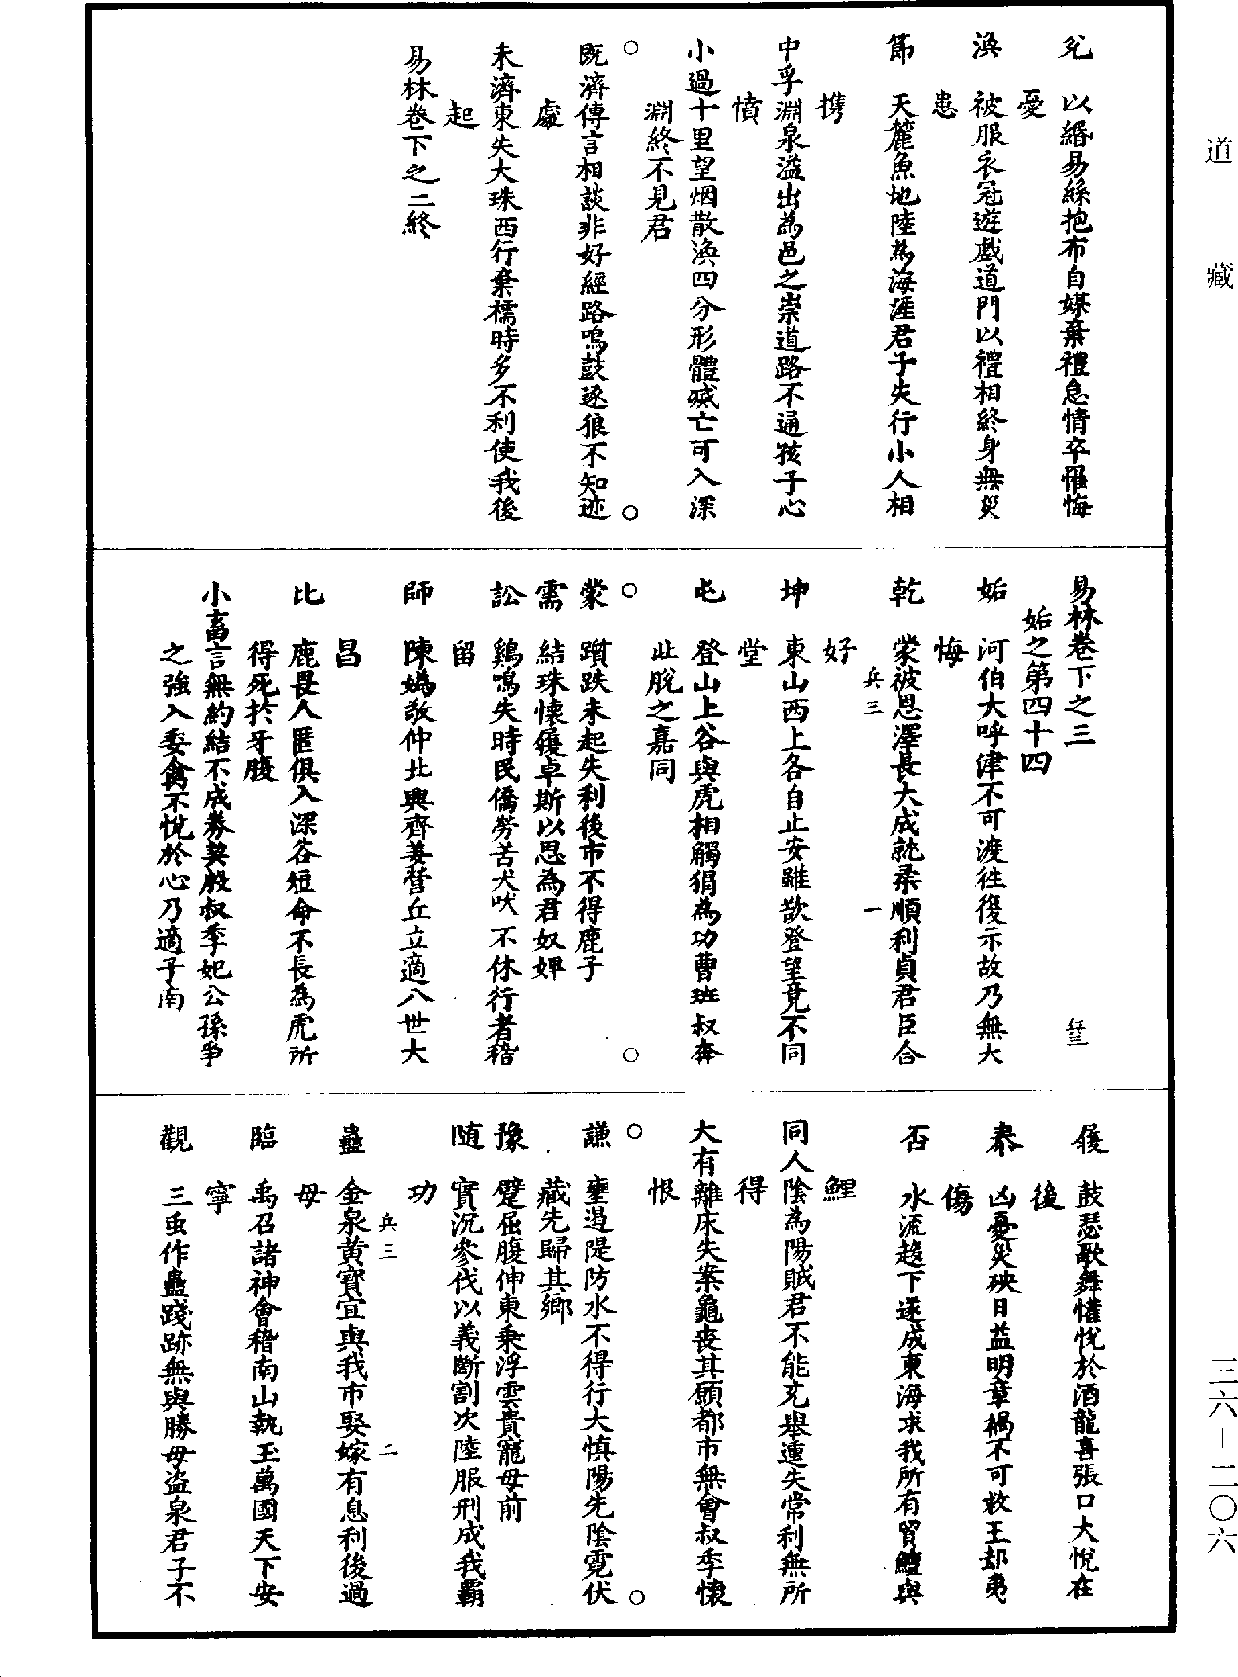 道藏
三六—二〇六
兊　以緡易絲抱布自媒棄禮急情卒罹悔
憂
渙　被服衣冠遊戲道門以禮相終身無災
患
節　天麓魚地陸為海涯君子失行小人相
携
中孚淵泉溢出為邑之祟道路不通孩子心
憤
小過十里望烟散渙四分形體㓕亡可入深
淵終不見君
○　○
既濟傳言相談非好經路鳴鼓逐狼不知迹
處
未濟東失大珠西行棄襦時多不利使我後
起
易林卷下之二終
易林卷下之三
姤之第四十四
姤　河伯大呼津不可渡往復示故乃無大
悔
乾　蒙被恩澤長大成就柔順利貞君臣合
好
兵三　一
坤　東山西上各自止安雖欲登望竟不同
堂
屯　登山上谷與虎相觸猬為功曹班叔奔
北脫之嘉同
○　○
蒙　躓跌未起失利後市不得鹿子
需　結珠懷履卓斯以思為君奴婢
訟　鷄鳴失時民僑勞苦犬吠不休行者稽
留
師　陳媯敬仲北興齊姜營丘立適八世大
昌
比　鹿畏人匿俱入深谷短命不長為虎所
得死於牙腹
小畜言無約結不成券契殷叔季妃公孫爭
之強入委禽不悅於心乃適子南
履　鼓瑟歌舞懽悅於酒龍喜張口大悅在
後
泰　凶憂災殃日益明章禍不可救王郄夷
傷
否　水流趍下遂成東海求我所有買鱣與
鯉
同人陰為陽賊君不能克舉連失常利無所
得
大有離床失案龜喪其願都市無會叔季懷
恨
○　○
謙　壅遏隄防水不得行大慎陽先陰霓伏
藏先歸其鄉
豫　躄屈腹伸東乗浮雲貴寵毋前
随　實沉參伐以義斷割次陸服刑成我霸
功
兵三　二
蠱　金泉黃寳宜與我市娶嫁有息利後過
母
臨　禹召諸神會稽南山執玉萬國天下安
寧
觀　三虫作蠱踐跡無與勝母盜泉君子不